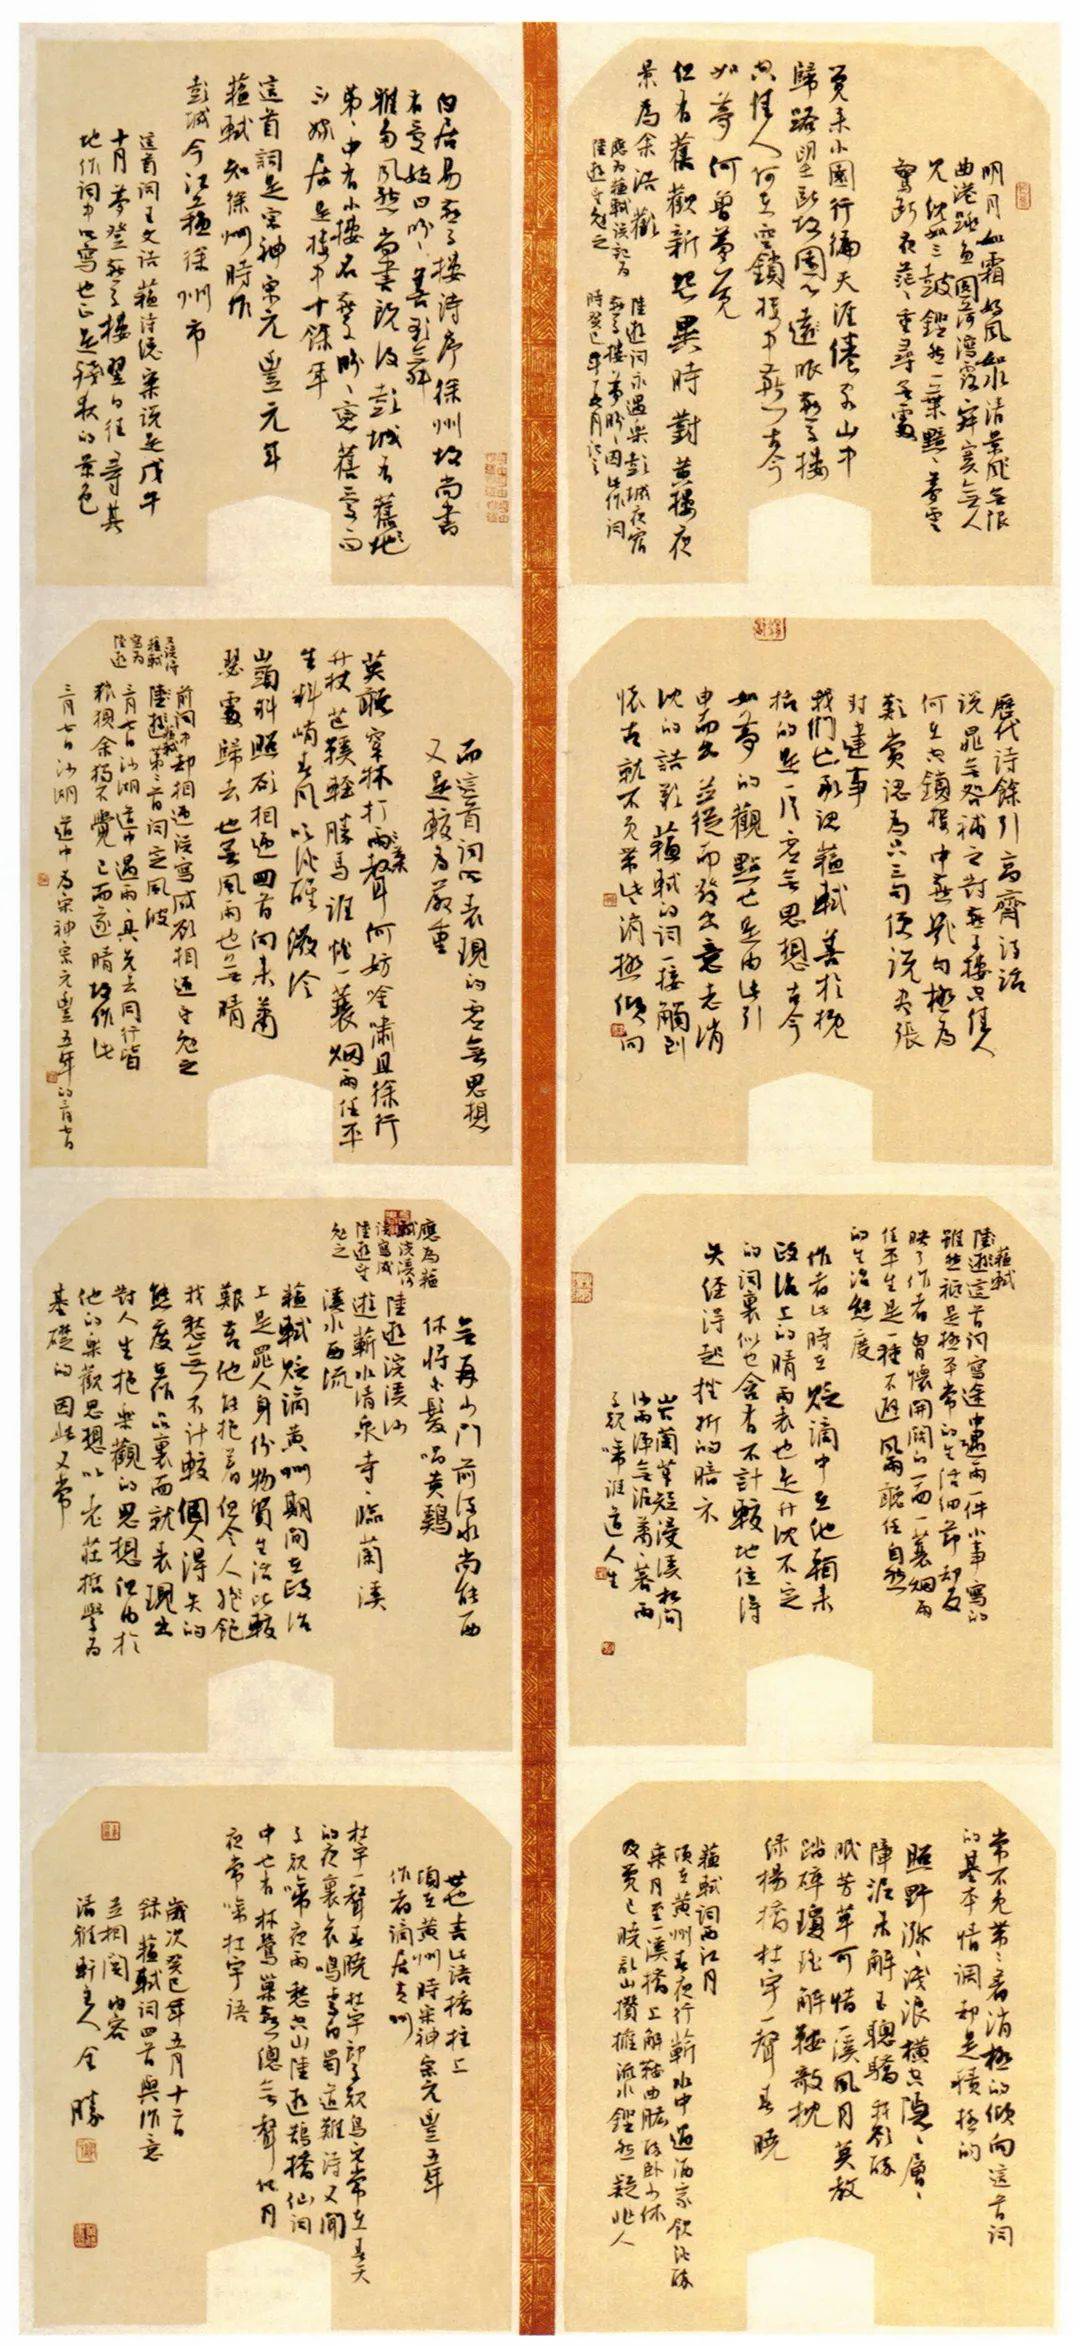 明月如霜好風如水清景無限
曲港跳魚圓荷瀉露寂寞無人
見紞如三鼓鏗然一葉黯〻夢雲
驚斷夜茫〻重尋無處
覺來小園行徧天涯倦客山中
歸路望斷故園心遠眼燕子樓
空佳人何在空鎖樓中燕古今
如夢何曾夢覺
但有舊歡新怨異時對黃樓夜
景為余浩歎
陸游詞永遇樂彭城夜宿
燕子樓夢盼〻因作詞
時癸巳年五月
應為蘇軾誤記為
陸游守勉之
白居易燕子樓詩序徐州故尚書
有愛妓曰盼〻善歌舞
雅多風態尚書既歿彭城有舊地
第〻中有小樓名燕子盼〻念舊愛而
不嫁居是樓中十餘年
這首詞是宋神宗元豐元年
蘇軾知徐州時作
彭城今江蘇徐州市
這首詞王文誥蘇詩總案說是戊午
十月夢登燕子樓翌日往尋其
地作詞中所寫也正是殘秋的景色
歷代詩餘引高齋詩話
說晁無咎補之對燕子樓空佳人
何在空鎖樓中燕幾句極為
歎賞認為只三句便說盡張
封建事
我們亦承認蘇軾善於概
括的是一片虛無思想古今
如夢的觀點也是由此引
申而出並從而發出意志消
沈的語歎蘇軾的詞一接觸到
懷古就不免帶些消極傾向
而這首詞所表現的虛無思想
又是較為嚴重
莫聽穿林打葉聲何妨吟嘯且徐行
竹杖芒鞵輕勝馬誰怕一蓑烟雨任平
生料峭春風吹酒醒微冷
山頭斜照卻相迎回首向來蕭
瑟處歸去也無風雨也無晴
前詞中卻相迎誤寫成顧相迎守勉之
陸游第二首詞定風波
蘇軾
三月七日沙湖道中遇雨雨具先去同行皆
狼狽余獨不覺已而遂晴故作此
三月七日沙湖道中為宋神宗元豐五年的三月七日
蘇軾
陸游這首詞寫途中遇雨一件小事寫的
雖然祗是極平常的生活細節却反
映了作者胸懷開闊的一面一蓑烟雨
任平生是一種不避風雨聽任自然
的生活態度
作者此時在貶謫中在他看來
政治上的晴雨表也是升沈不定
的詞裏似也含有不計較地位得
失經得起挫折的暗示
山下蘭芽短浸溪松間
沙路淨無泥蕭〻暮雨
子規啼誰道人生
無再少門前流水尚能西
休將白髮唱黃鷄
陸游浣溪沙
遊蘄水清泉寺〻臨蘭溪
溪水西流
蘇軾貶謫黃州期間在政治
上是罪人身份物質生活比較
艱苦他能抱着但令人飽
我愁無不計較個人得失的
態度在作品裏而就表現出
對人生抱樂觀的思想但由於
他的樂觀思想以老莊哲學為
基礎的因此又常
常不免帶〻着消極的傾向這首詞
的基本情調却是積極的
照野瀰〻淺浪橫空隱〻層〻
障泥未解玉驄驕我欲醉
眠芳草可惜一溪風月莫教
踏碎瓊瑤解鞍敧枕
綠楊橋杜宇一聲春曉
蘇軾詞西江月
頃在黃州春夜行蘄水中過酒家飲酒醉
乘月至一溪橋上解鞍曲肱醉臥少休
及覺已曉亂山攢擁流水鏗然疑非人
世也書此語橋柱上
頃在黃州時宋神宗元豐五年
作者謫居黃州
杜宇一聲春曉杜宇即子規鳥它常在春天
的夜裏哀鳴李白蜀道難詩又聞
子規啼夜月愁空山陸游鵲橋仙詞
中也有林鶯巢燕總無聲但月
夜常啼杜宇語
歲次癸巳年五月十六日
録蘇軾詞四首與作意
互相閱內容
清雅軒主人全勝